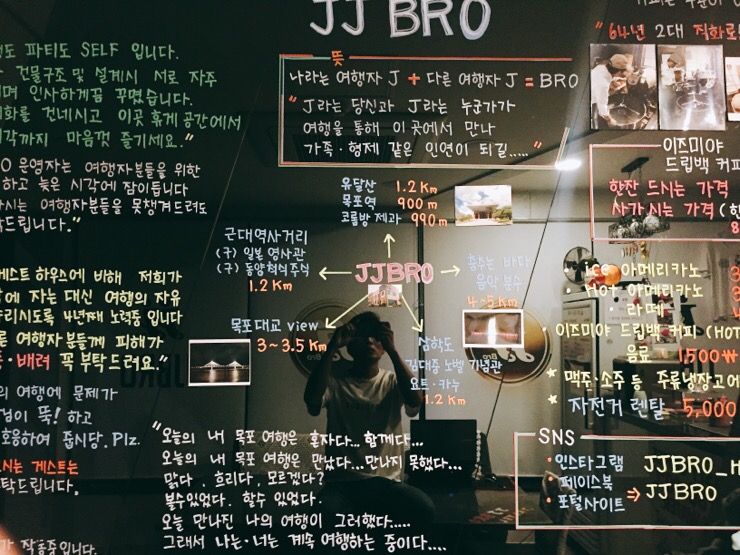 JJ BRO
도 파티도 SELF 입니다.
건물구조 및 설계시 서로 자주
며 인사하게끔 꾸몄습니다.
화를 건네시고 이곳 휴게 공간에서
시각까지 마음껏 즐기세요."
O 운영자는 여행자분들을 위한
하고 늦은 시각에 잠이듭니다
시는 여행자분들을 못챙겨드려도
탁드립니다."
게스트 하우스에 비해 저희가
에 자는 대신 여행의 자유
리시도록 4년째 노력중 입니다
른 여행자분들께 피해가
·배려 꼭 부탁드려요."
의 여행에 문제가
검이 뚝! 하고
호응하여 줍시당. Plz.
시는 게스트는
탁드립니다.
가 작동중입니다.
뜻
나라는 여행자 J + 다른 여행자 J = BRO
"J라는 당신과 J라는 누군가가
여행을 통해 이곳에서 만나
가족·형제 같은 인연이 되길....."
유달산 1.2 Km
목포역 900 m
코롬방 제과 990m
근대역사거리
(구) 일본 영사관
(구) 동양척식주식
1.2 Km
JJBRO
춤추는 바다
음악 분수
4~5 Km
목포대교 view
3~3.5 Km
삼학도
김대중 노벨 기념관
요트·카누
1.2 Km
"오늘의 내 목포 여행은 혼자다... 함께다...
오늘의 내 목포 여행은 만났다...만나지 못했다...
맑다. 흐리다. 모르겠다?
볼수있었다. 할수 있었다.
오늘 만나진 나의 여행이 그러했다.....
그래서 나는·너는 계속 여행하는 중이다....
"64년 2대 직화로
이즈미야
드립백 커피
한잔 드시는 가격
사가시는 가격 (한
8
Ice 아메리카노 3
Hot 아메리카노 3
라떼 4
이즈미야 드립백 커피 (HOT
음료 1,500₩
★ 맥주·소주 등 주류냉장고에
★ 자전거 렌탈 5,000
SNS
· 인스타그램 JJBRO_H
· 페이스북
· 포털사이트 → JJBRO